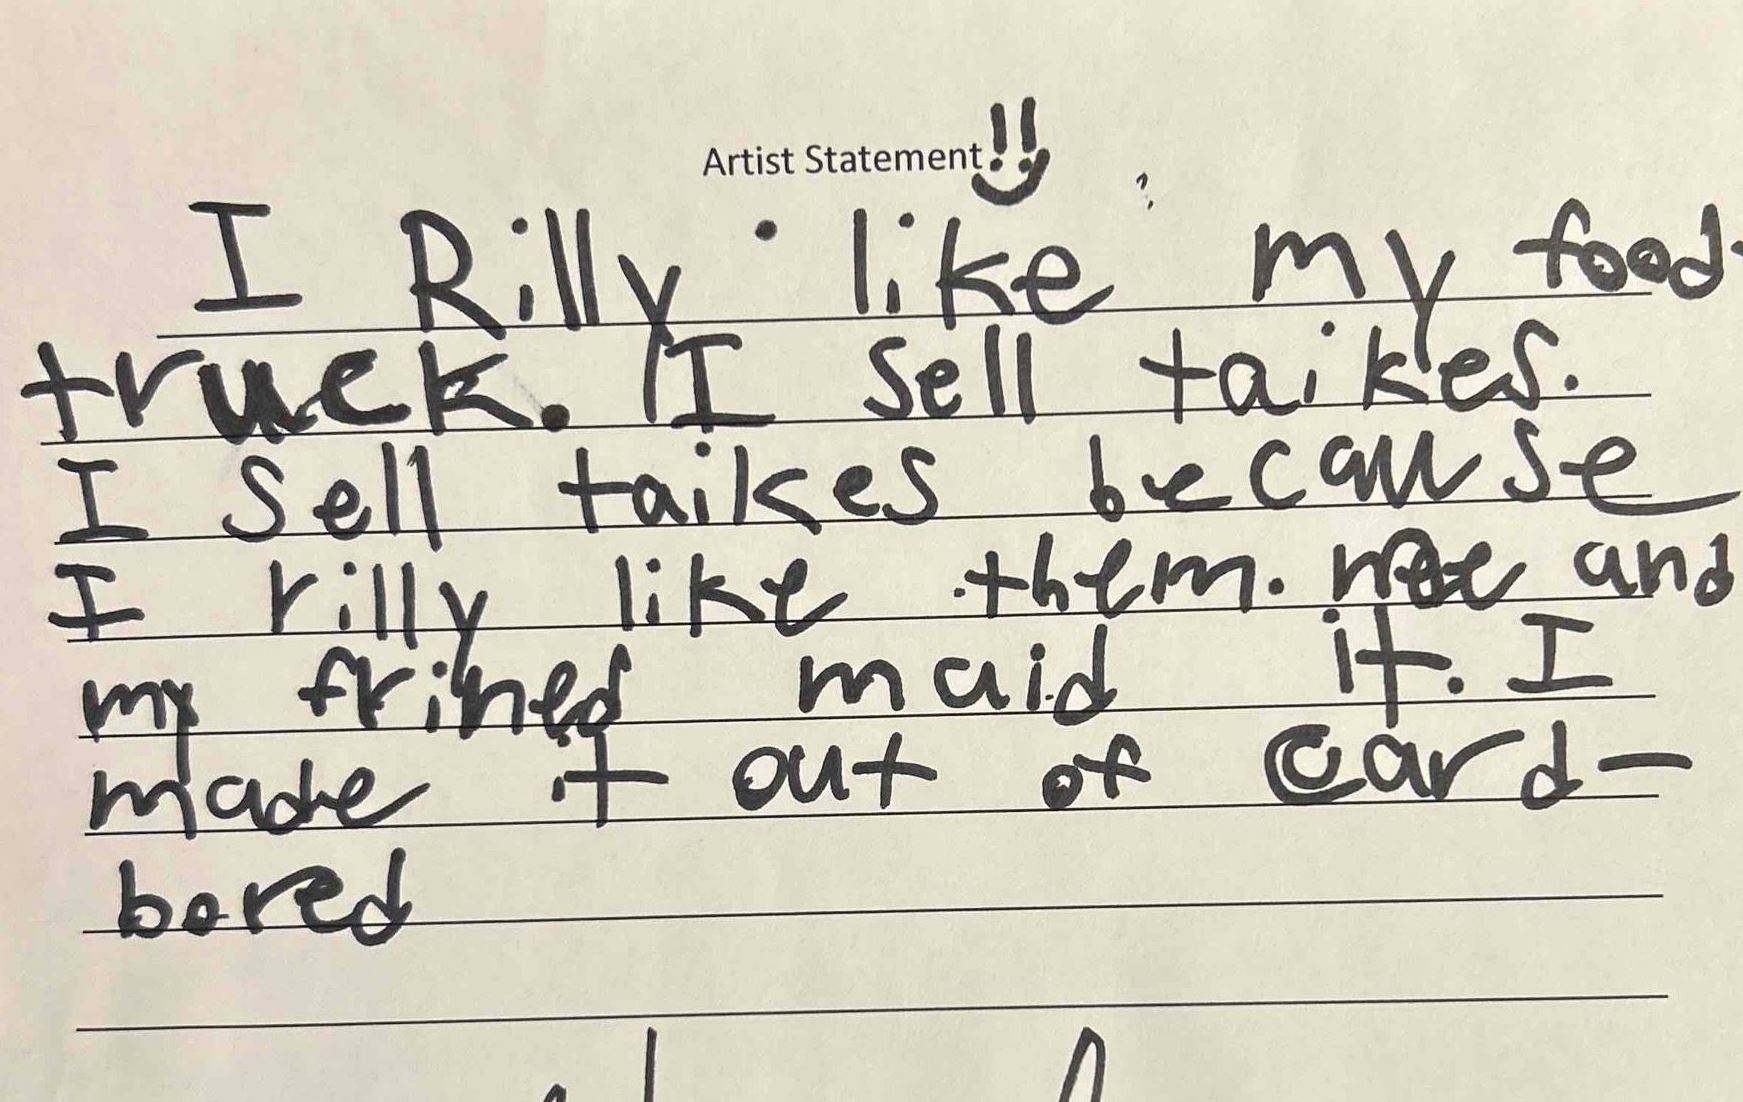 Artist Statement!!
I Rilly like my food-
truck. I sell taikes.
I sell taikes because
I rilly like them. me and
my frined maid it. I
made it out of card-
bored